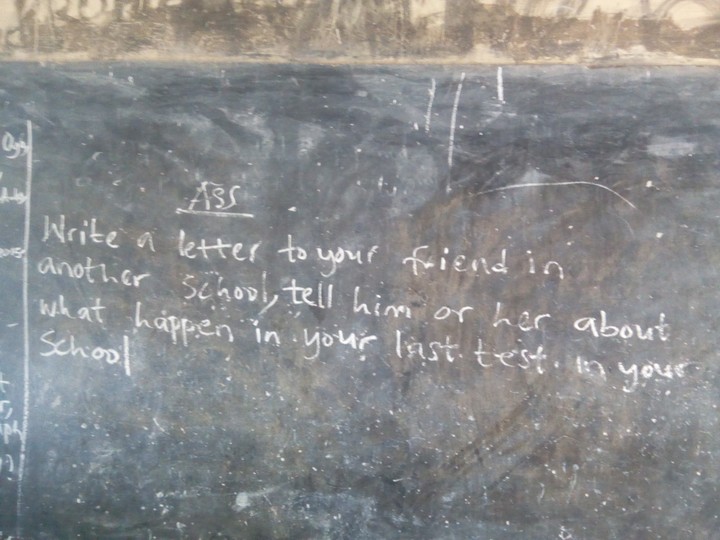 Ass
Write a letter to your friend in
another School, tell him or her about
what happen in your last test. in your
School